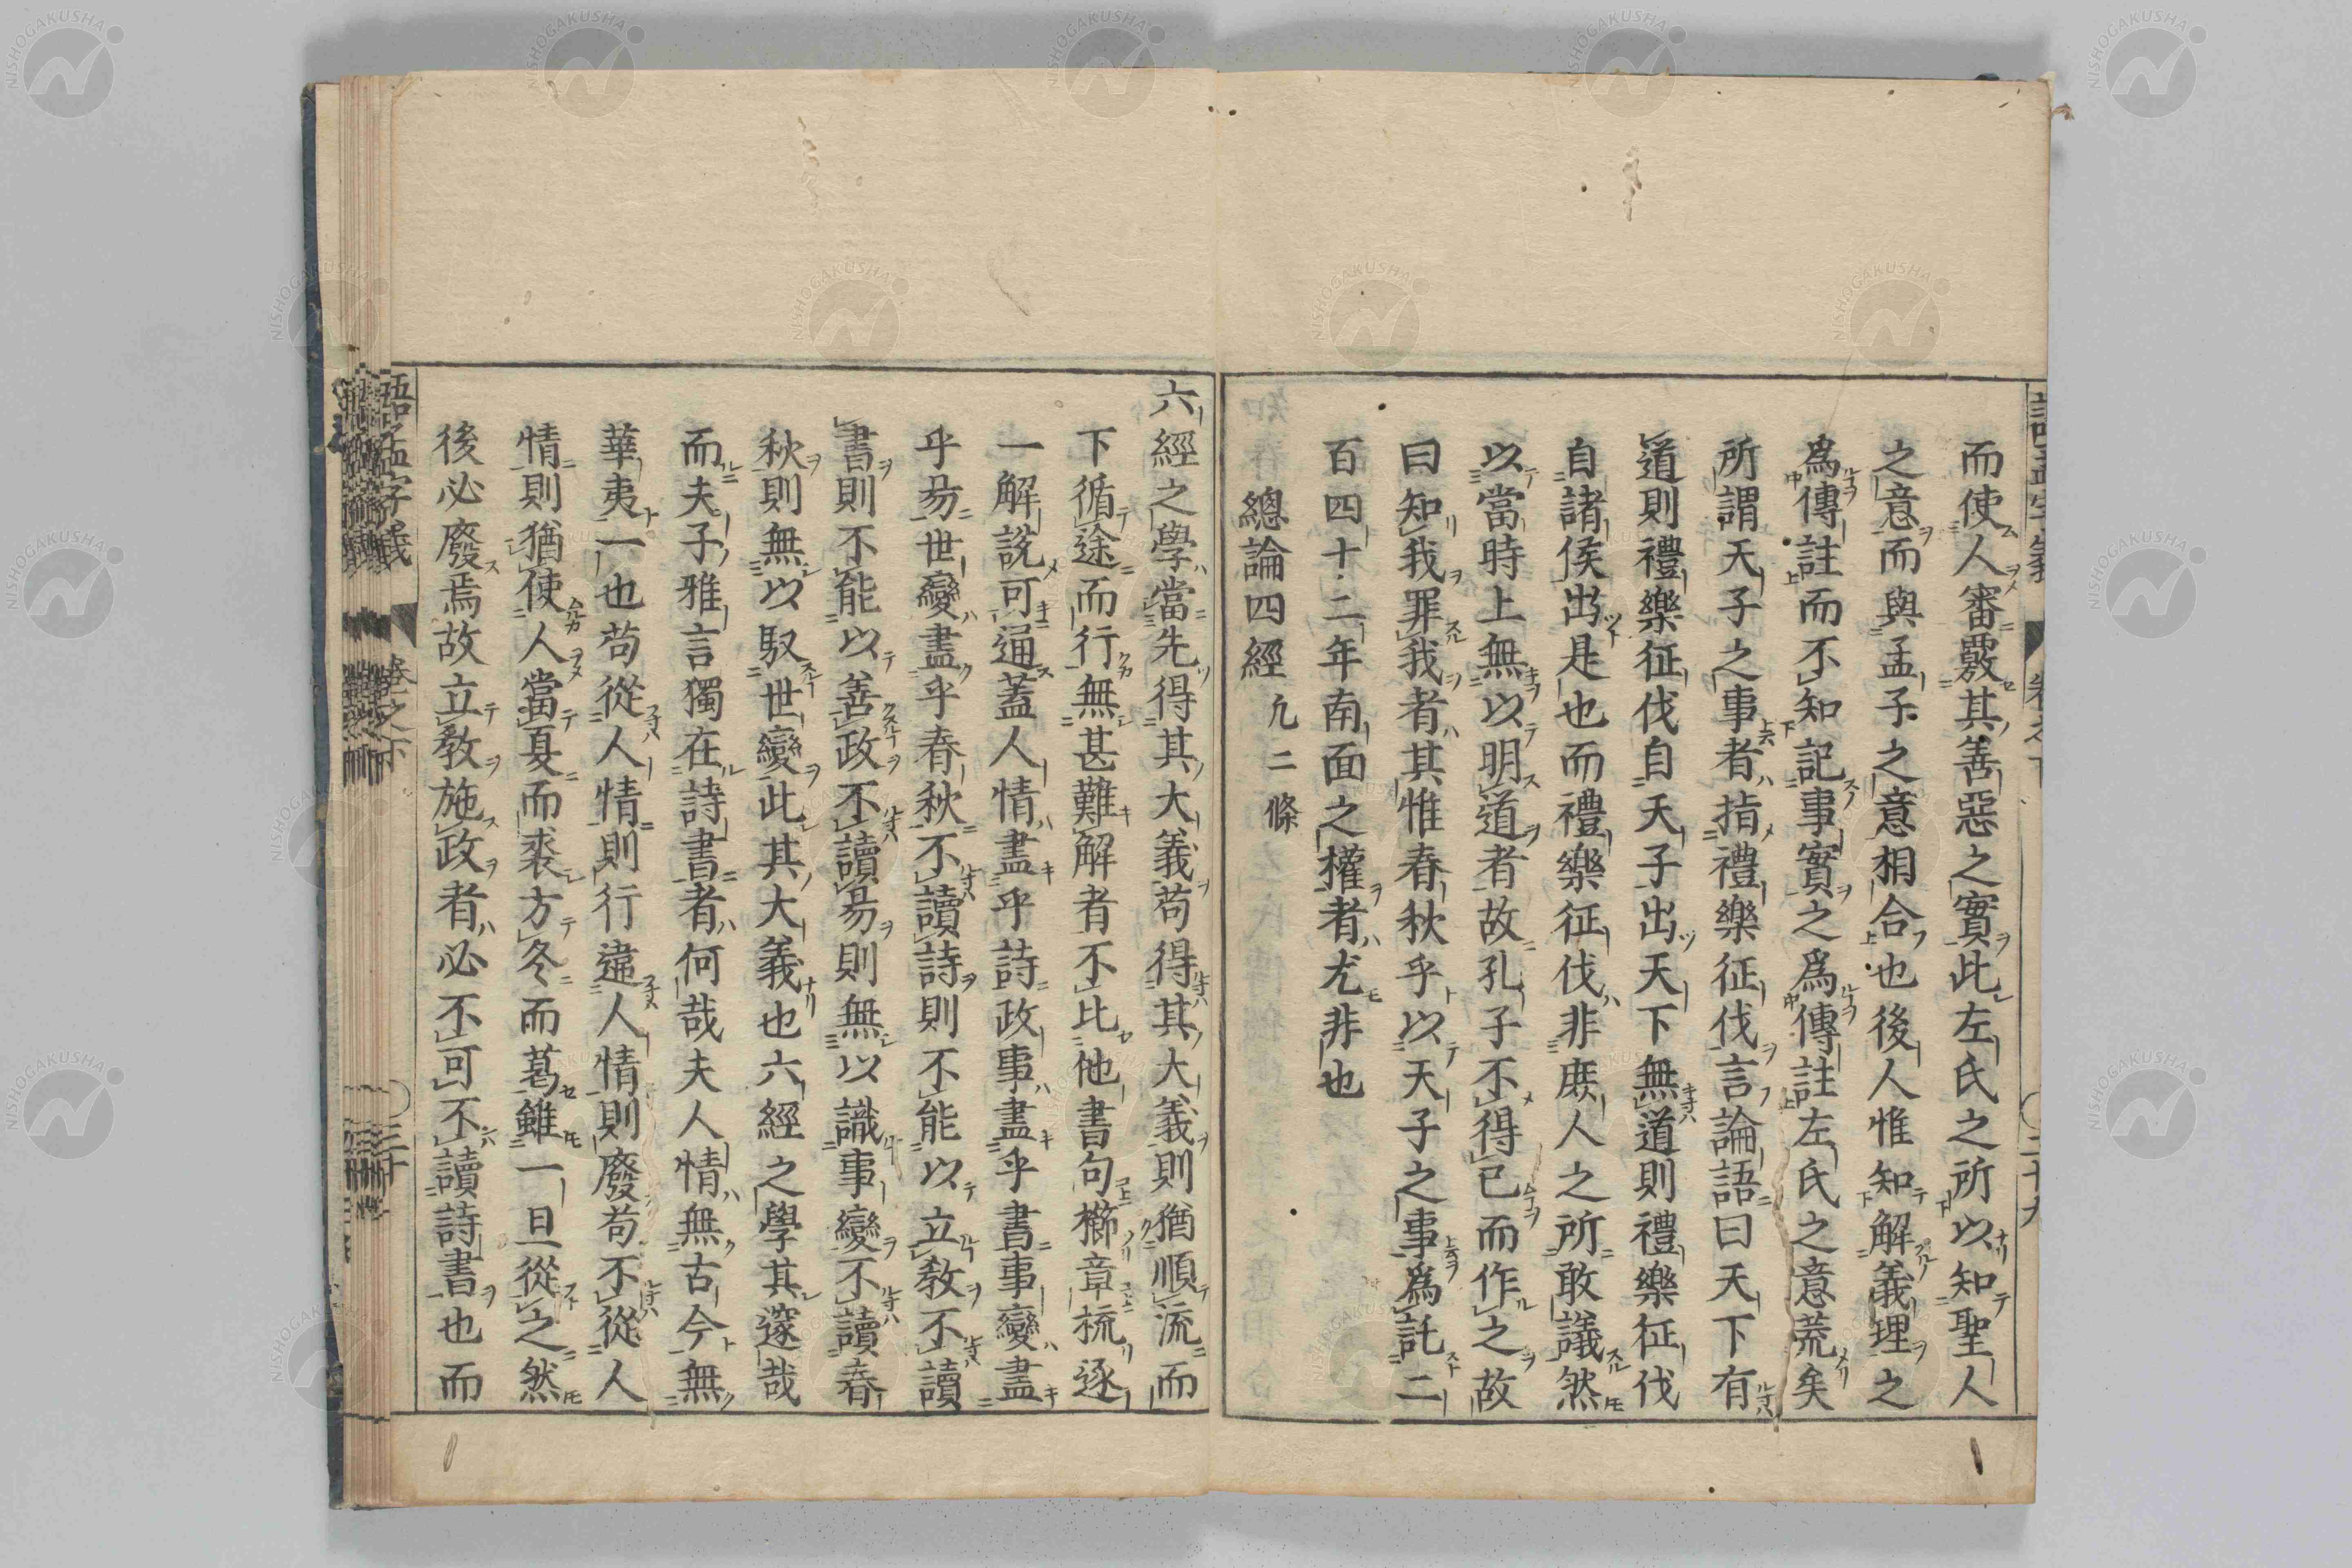 而使人審覈其善惡之實此左氏之所以知聖人
之意而與孟子之意相合也後人惟知解義理之
爲傳註而不知記事實之爲傳註左氏之意荒矣
所謂天子之事者指禮樂征伐言論語曰天下有
道則禮樂征伐自天子出天下無道則禮樂征伐
自諸侯出是也而禮樂征伐非庶人之所敢議然
以當時上無以明道者故孔子不得已而作之故
曰知我罪我者其惟春秋乎以天子之事爲託二
百四十二年南面之權者尤非也
總論四經 凢二條
六經之學當先得其大義苟得其大義則猶順流而
下循途而行無甚難解者不比他書句櫛章梳逐
一解說可通蓋人情盡乎詩政事盡乎書事變盡
乎昜世變盡乎春秋不讀詩則不能以立教不讀
書則不能以善政不讀昜則無以識事變不讀春
秋則無以馭世變此其大義也六經之學其邃哉
而夫子雅言獨在詩書者何哉夫人情無古今無
華夷一也苟從人情則行違人情則廢苟不從人
情則猶使人當夏而裘方冬而葛雖一旦從之然
後必廢焉故立教施政者必不可不讀詩書也而
語孟字義 卷之下 三十
NISHOGAKUSHA